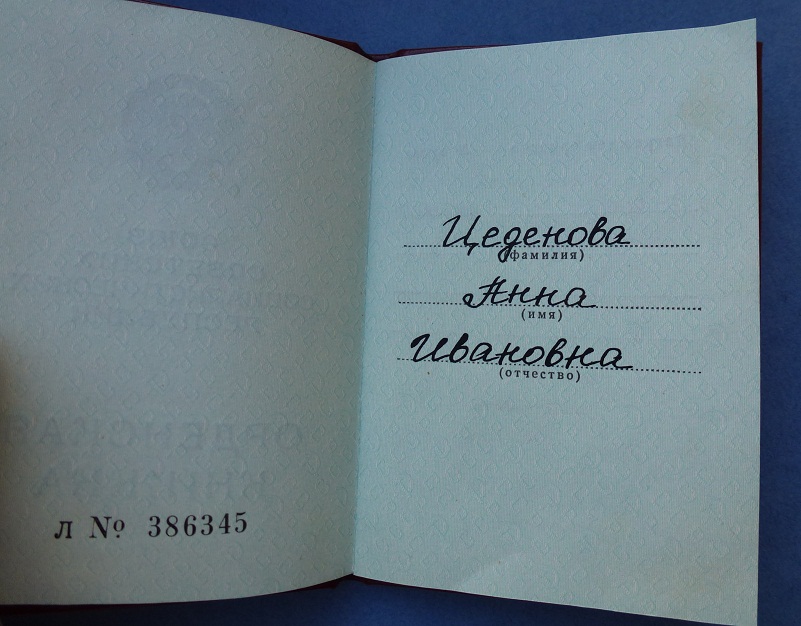 Л № 386345
Цеденова
(фамилия)
Анна
(имя)
Ивановна
(отчество)
ОРДЕНСКАЯ
КНИЖКА